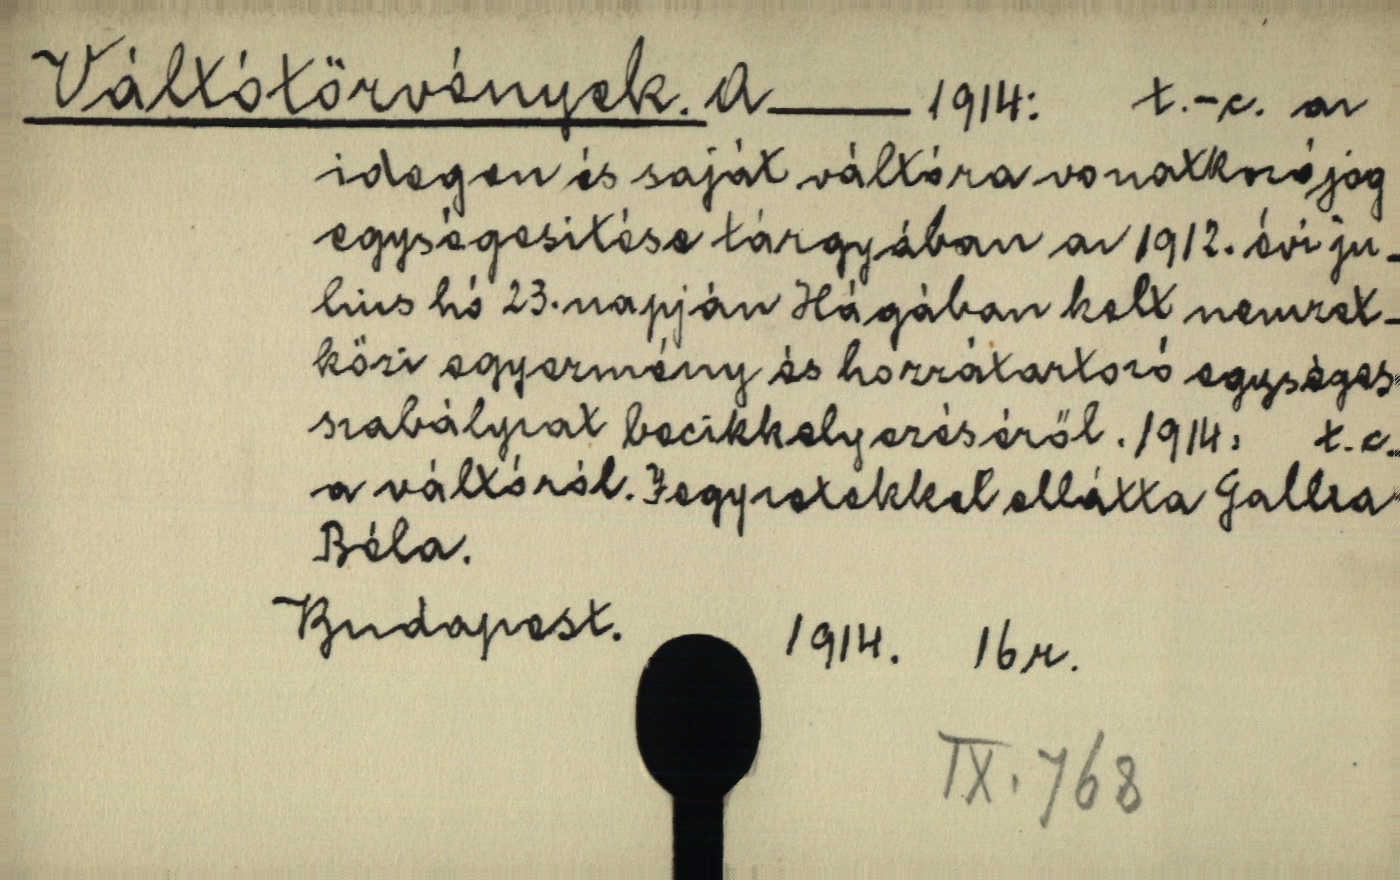 Váltótörvények. A —— 1914: t.-c. az
idegen és saját váltóra vonatkozó jog
egységesitése tárgyában az 1912. évi ju-
lius hó 23. napján Hágában kelt nemzet-
közi egyezmény és hozzátartozó egységes
szabályzat becikkelyezéséről. 1914: t.c.
a váltóról. Jegyzetekkel ellátta Gallia
Béla.
Budapest. 1914. 16r.
IX. 768